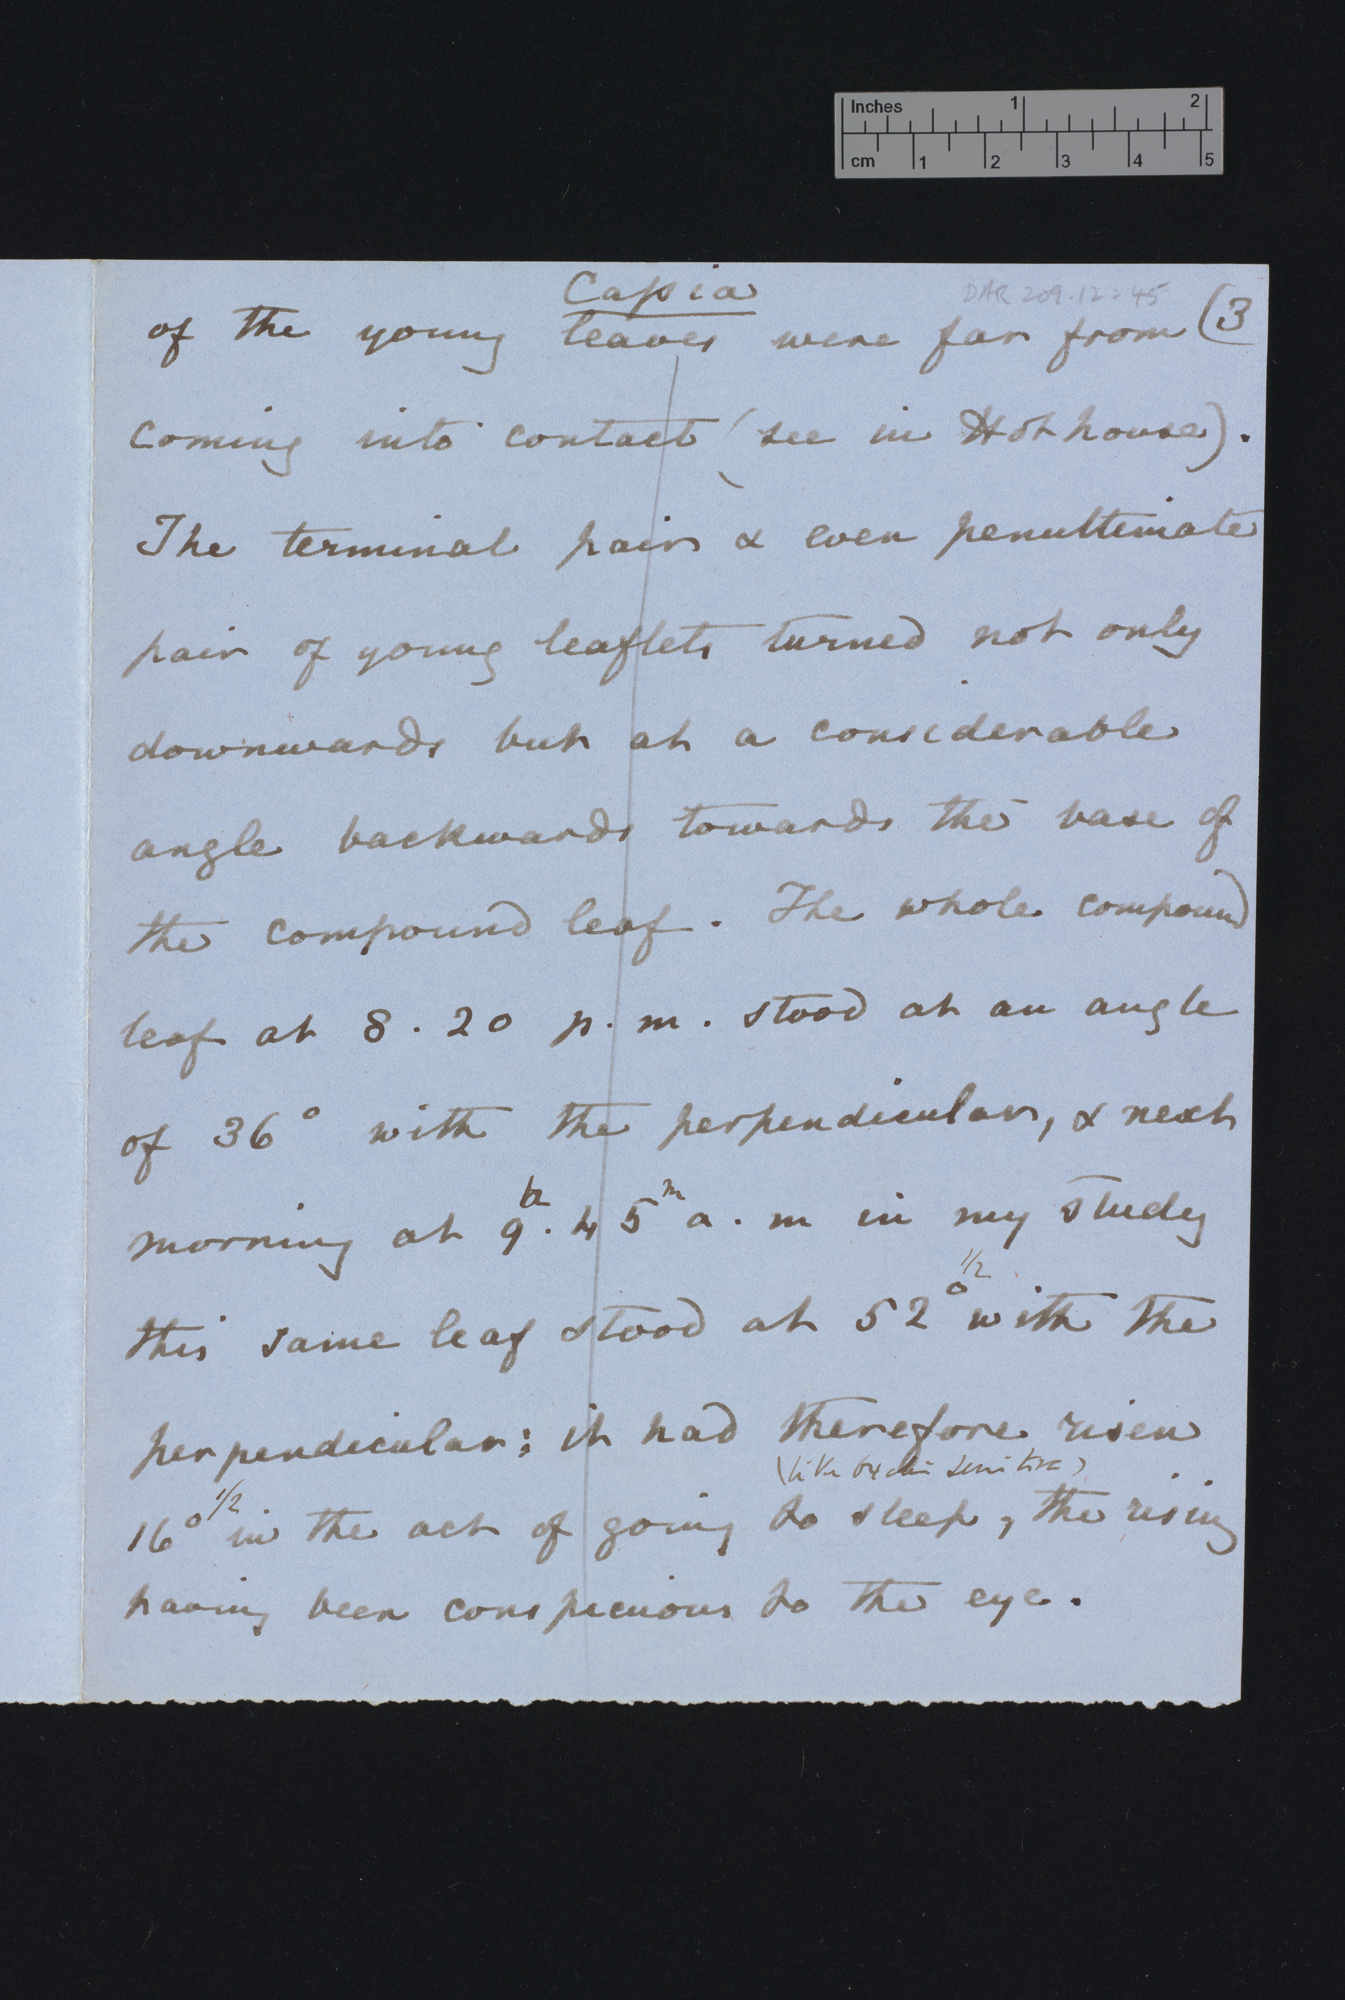 Inches 1 2
cm 1 2 3 4 5
Cassia
DAR 209.12:45
(3
of the young leaves were far from
coming into contact (see in Hot house).
The terminal pair & even penultimate
pair of young leaflets turned not only
downwards but at a considerable
angle backwards towards the base of
the compound leaf. The whole compound
leaf at 8.20 p.m. stood at an angle
of 36° with the perpendicular, & next
morning at 9h.45m a.m in my study
this same leaf stood at 52° 1/2 with the
perpendicular: it had therefore risen
(like
16° 1/2 in the act of going to sleep, the rising
having been conspicuous to the eye.